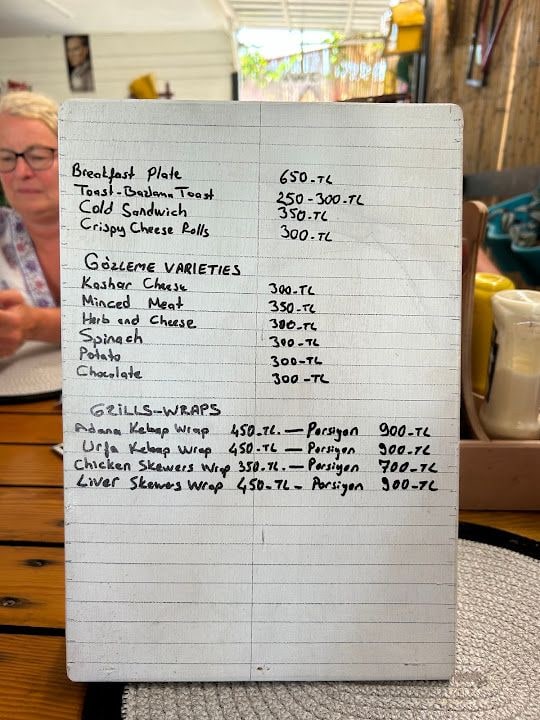 Breakfast Plate 650-TL
Toast-Bazlama Toast 250-300-TL
Cold Sandwich 350-TL
Crispy Cheese Rolls 300-TL
GÖZLEME VARIETIES
Kashar Cheese 300-TL
Minced Meat 350-TL
Herb and Cheese 300-TL
Spinach 300-TL
Potato 300-TL
Chocolate 300-TL
GRILLS-WRAPS
Adana Kebap Wrap 450-TL. — Porsiyon 900-TL
Urfa Kebap Wrap 450-TL — Porsiyon 900-TL
Chicken Skewers Wrap 350-TL — Porsiyon 700-TL
Liver Skewers Wrap 450-TL - Porsiyon 900-TL